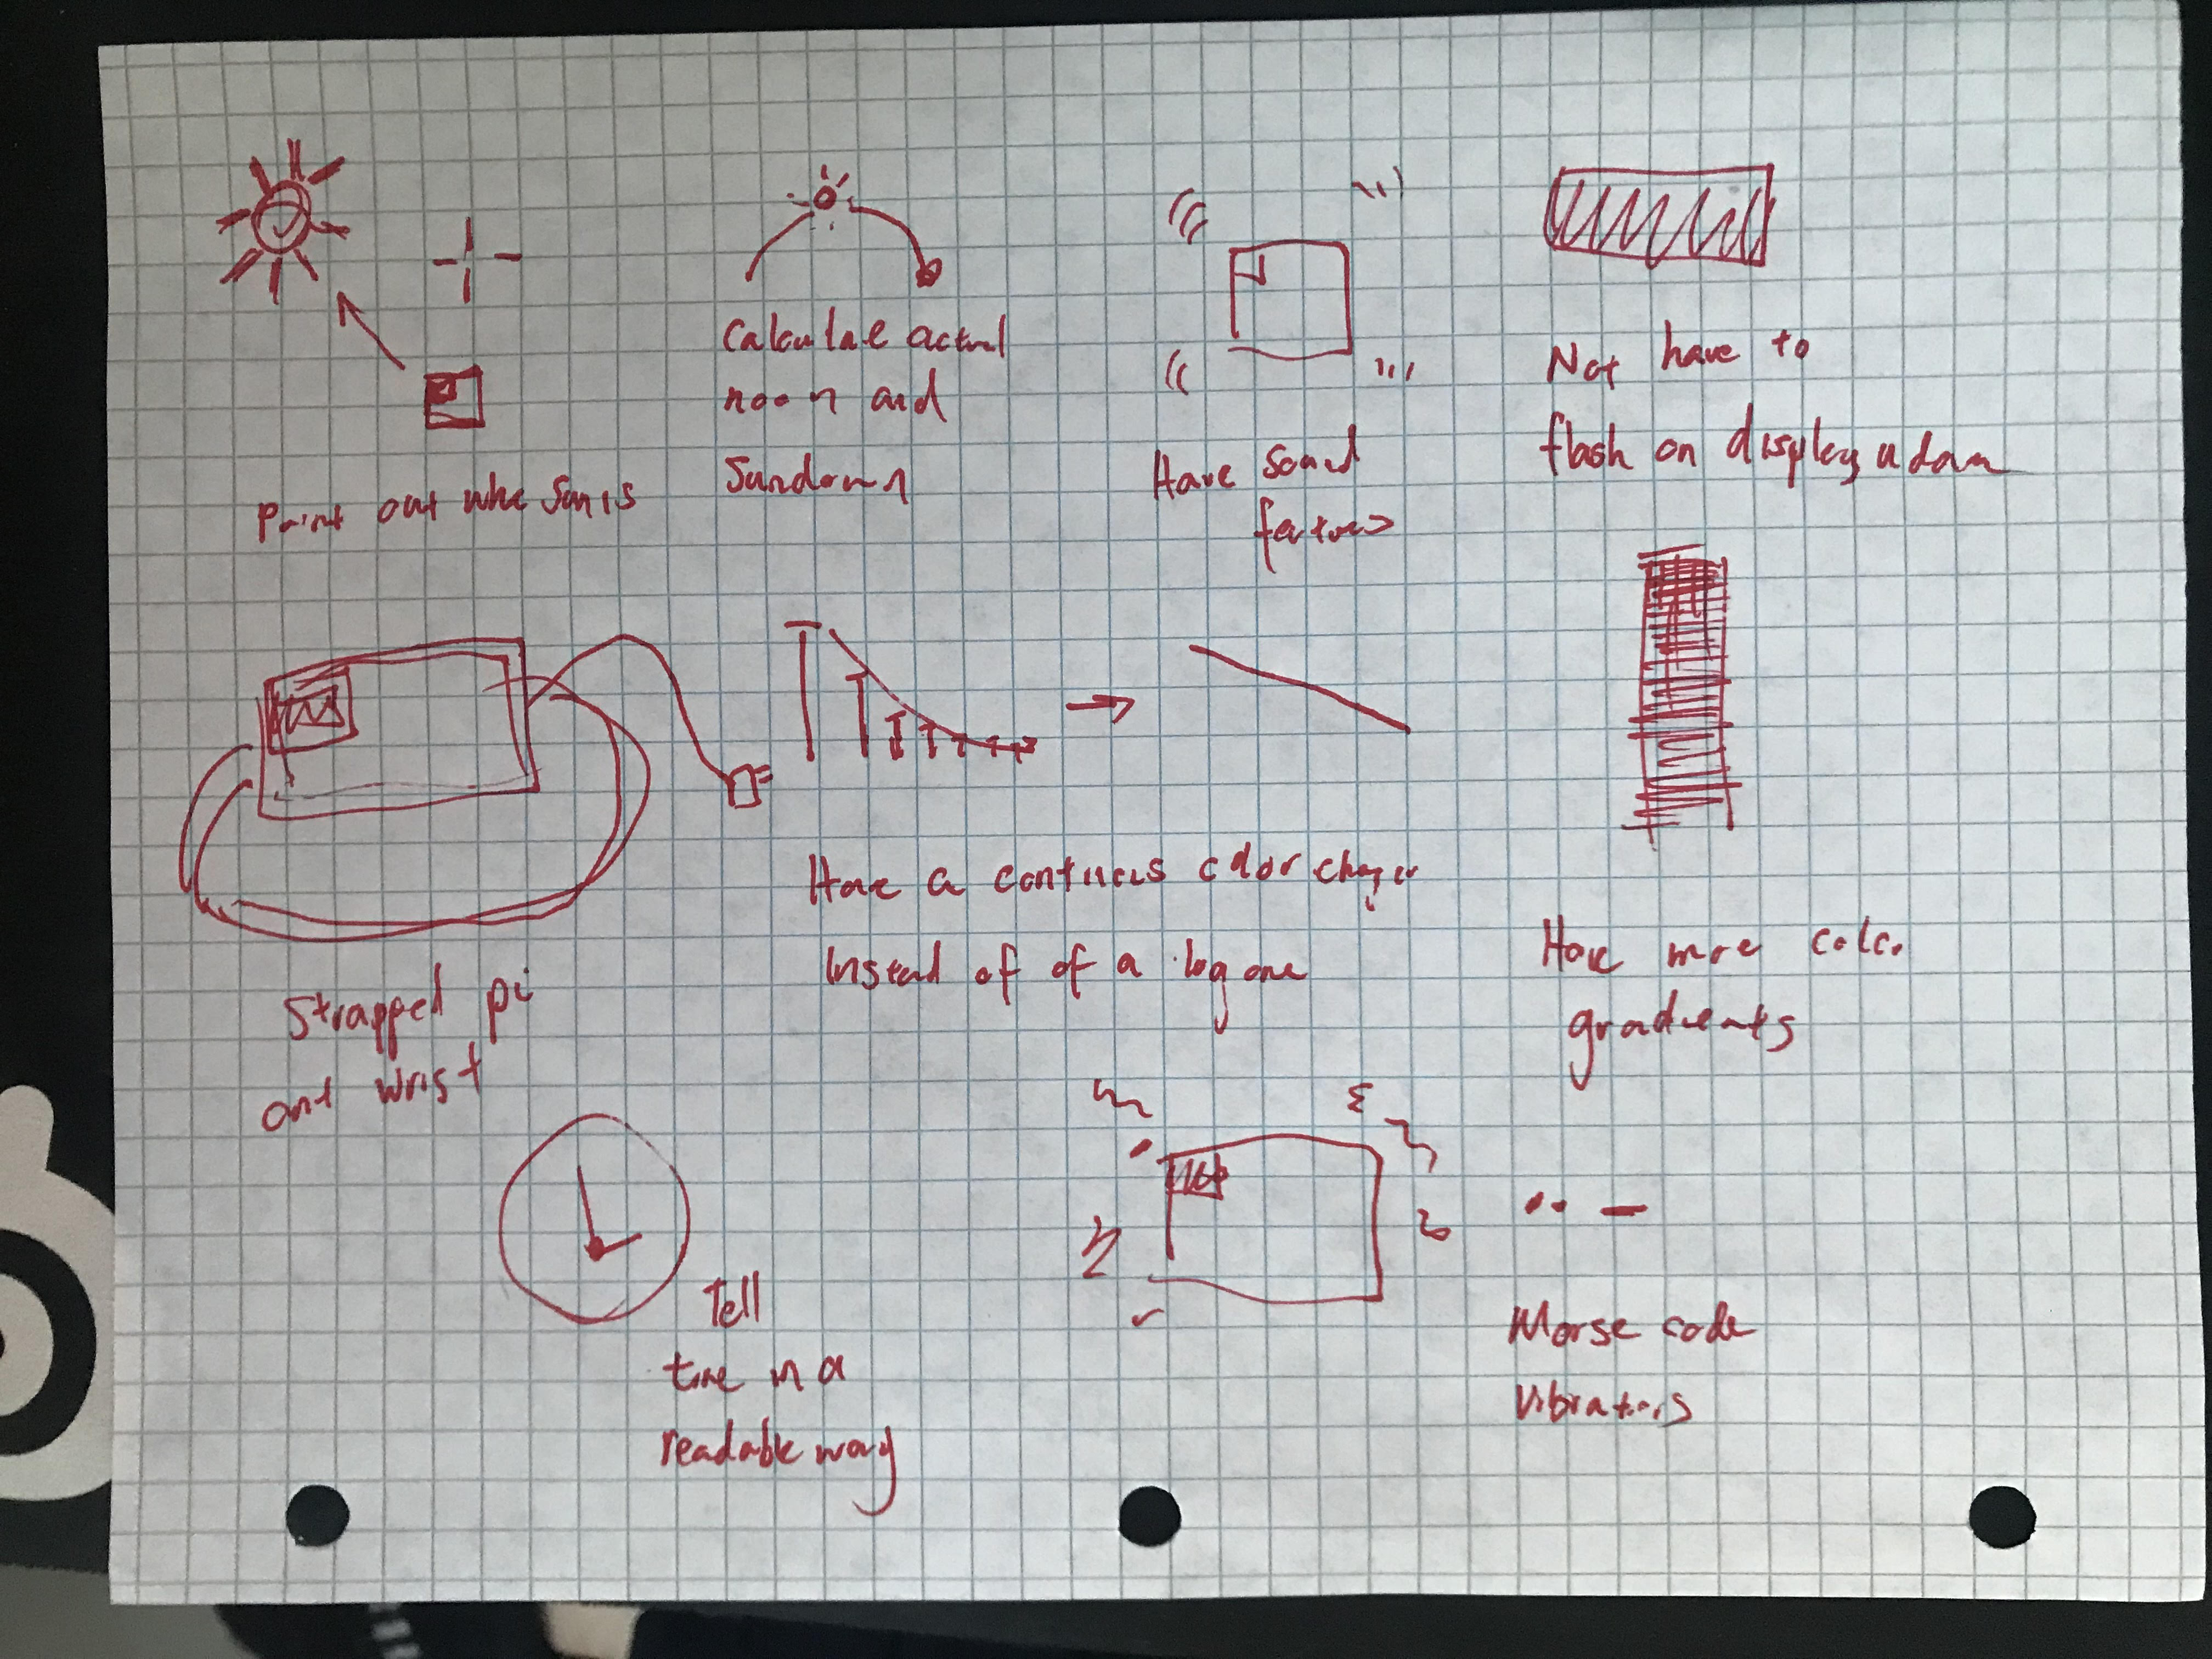 Point out whe Sun is
Calculate actual
noon and
Sundown
Have Sound
features
Not have to
flash on display
Strapped pi
ont wrist
Have a continuous color change
Instead of of a log one
Have more color
gradients
Tell
time in a
readable way
Morse code
Vibrations